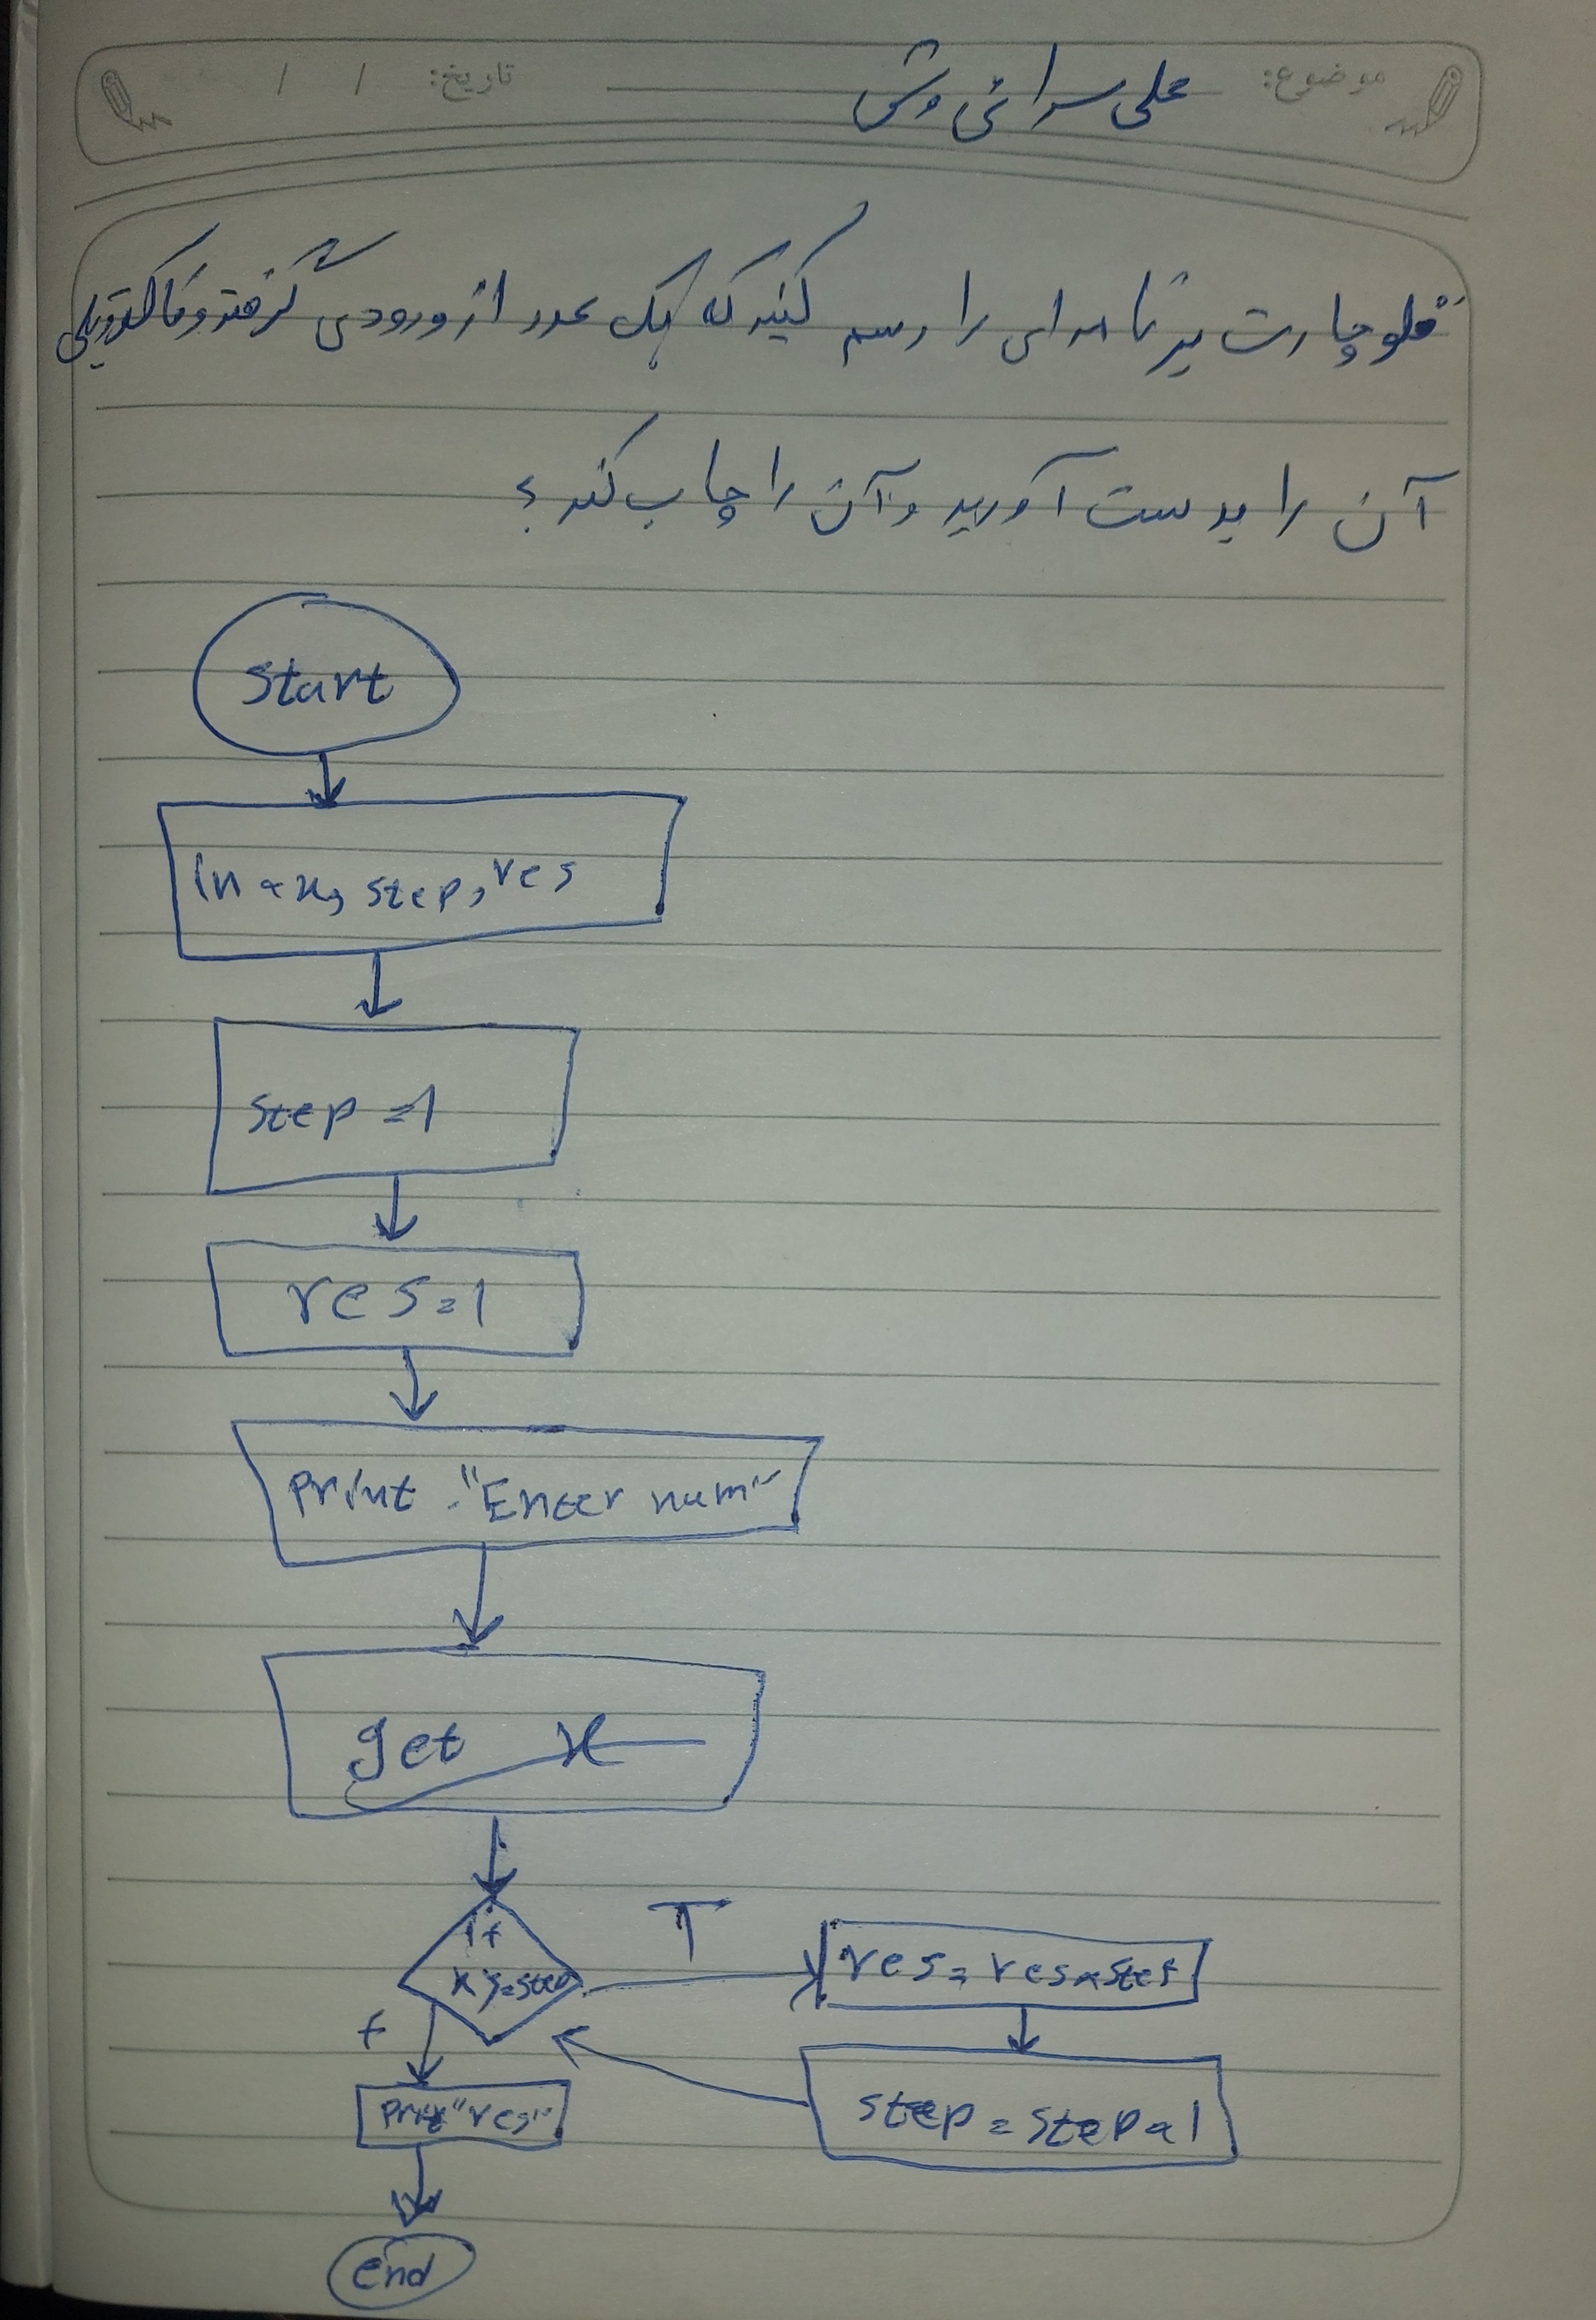 موضوع: علی سرائی وش تاریخ: / /
فلوچارت برنامه ای را رسم کنید که یک عدد از ورودی گرفته و فاکتوریل
آن را بدست آورید و آن را چاپ کند؟
start
x, step, res
step = 1
res = 1
print "Enter num"
get x
if
x >= step
T
res = res × step
f
print "res"
step = step 1
end